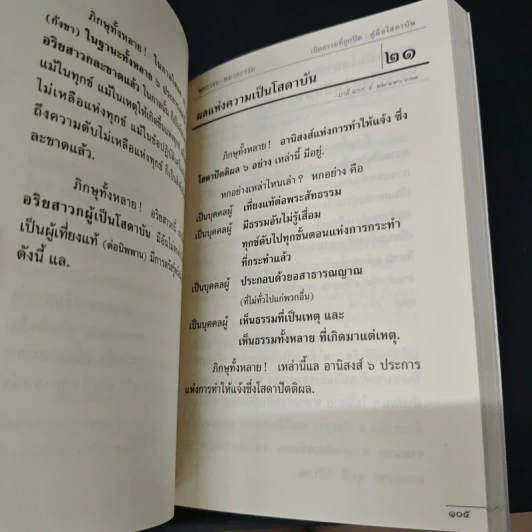 ภิกษุทั้งหลาย! ในกาลใด
(กังขา) ในฐานะทั้งหลาย ๖ ประการ
อริยสาวกละขาดแล้ว ในกาลนั้น
แม้ในทุกข์ แม้ในเหตุให้เกิดขึ้นแห่งทุกข์
ไม่เหลือแห่งทุกข์ แม้ในข้อปฏิบัติ
ถึงความดับไม่เหลือแห่งทุกข์
ละขาดแล้ว.
ภิกษุทั้งหลาย! อริยสาวกนี้
อริยสาวกผู้เป็นโสดาบัน
เป็นผู้เที่ยงแท้ (ต่อนิพพาน)
ดังนี้ แล.
พุทธวจน - หมวดธรรม
เปิดธรรมที่ถูกปิด : คู่มือโสดาบัน
ผลแห่งความเป็นโสดาบัน
๒๑
ภิกษุทั้งหลาย! อานิสงส์แห่งการทำให้แจ้ง ซึ่ง
โสดาปัตติผล ๖ อย่าง เหล่านี้ มีอยู่.
หกอย่างเหล่าไหนเล่า? หกอย่าง คือ
เป็นบุคคลผู้ เที่ยงแท้ต่อพระสัทธรรม
เป็นบุคคลผู้ มีธรรมอันไม่รู้เสื่อม
ทุกข์ดับไปทุกขั้นตอนแห่งการกระทำ
ที่กระทำแล้ว
เป็นบุคคลผู้ ประกอบด้วยอสาธารณญาณ
(ที่ไม่ทั่วไปแก่พวกอื่น)
เป็นบุคคลผู้ เห็นธรรมที่เป็นเหตุ และ
เห็นธรรมทั้งหลาย ที่เกิดมาแต่เหตุ.
ภิกษุทั้งหลาย! เหล่านี้แล อานิสงส์ ๖ ประการ
แห่งการทำให้แจ้งซึ่งโสดาปัตติผล.
๑๐๕